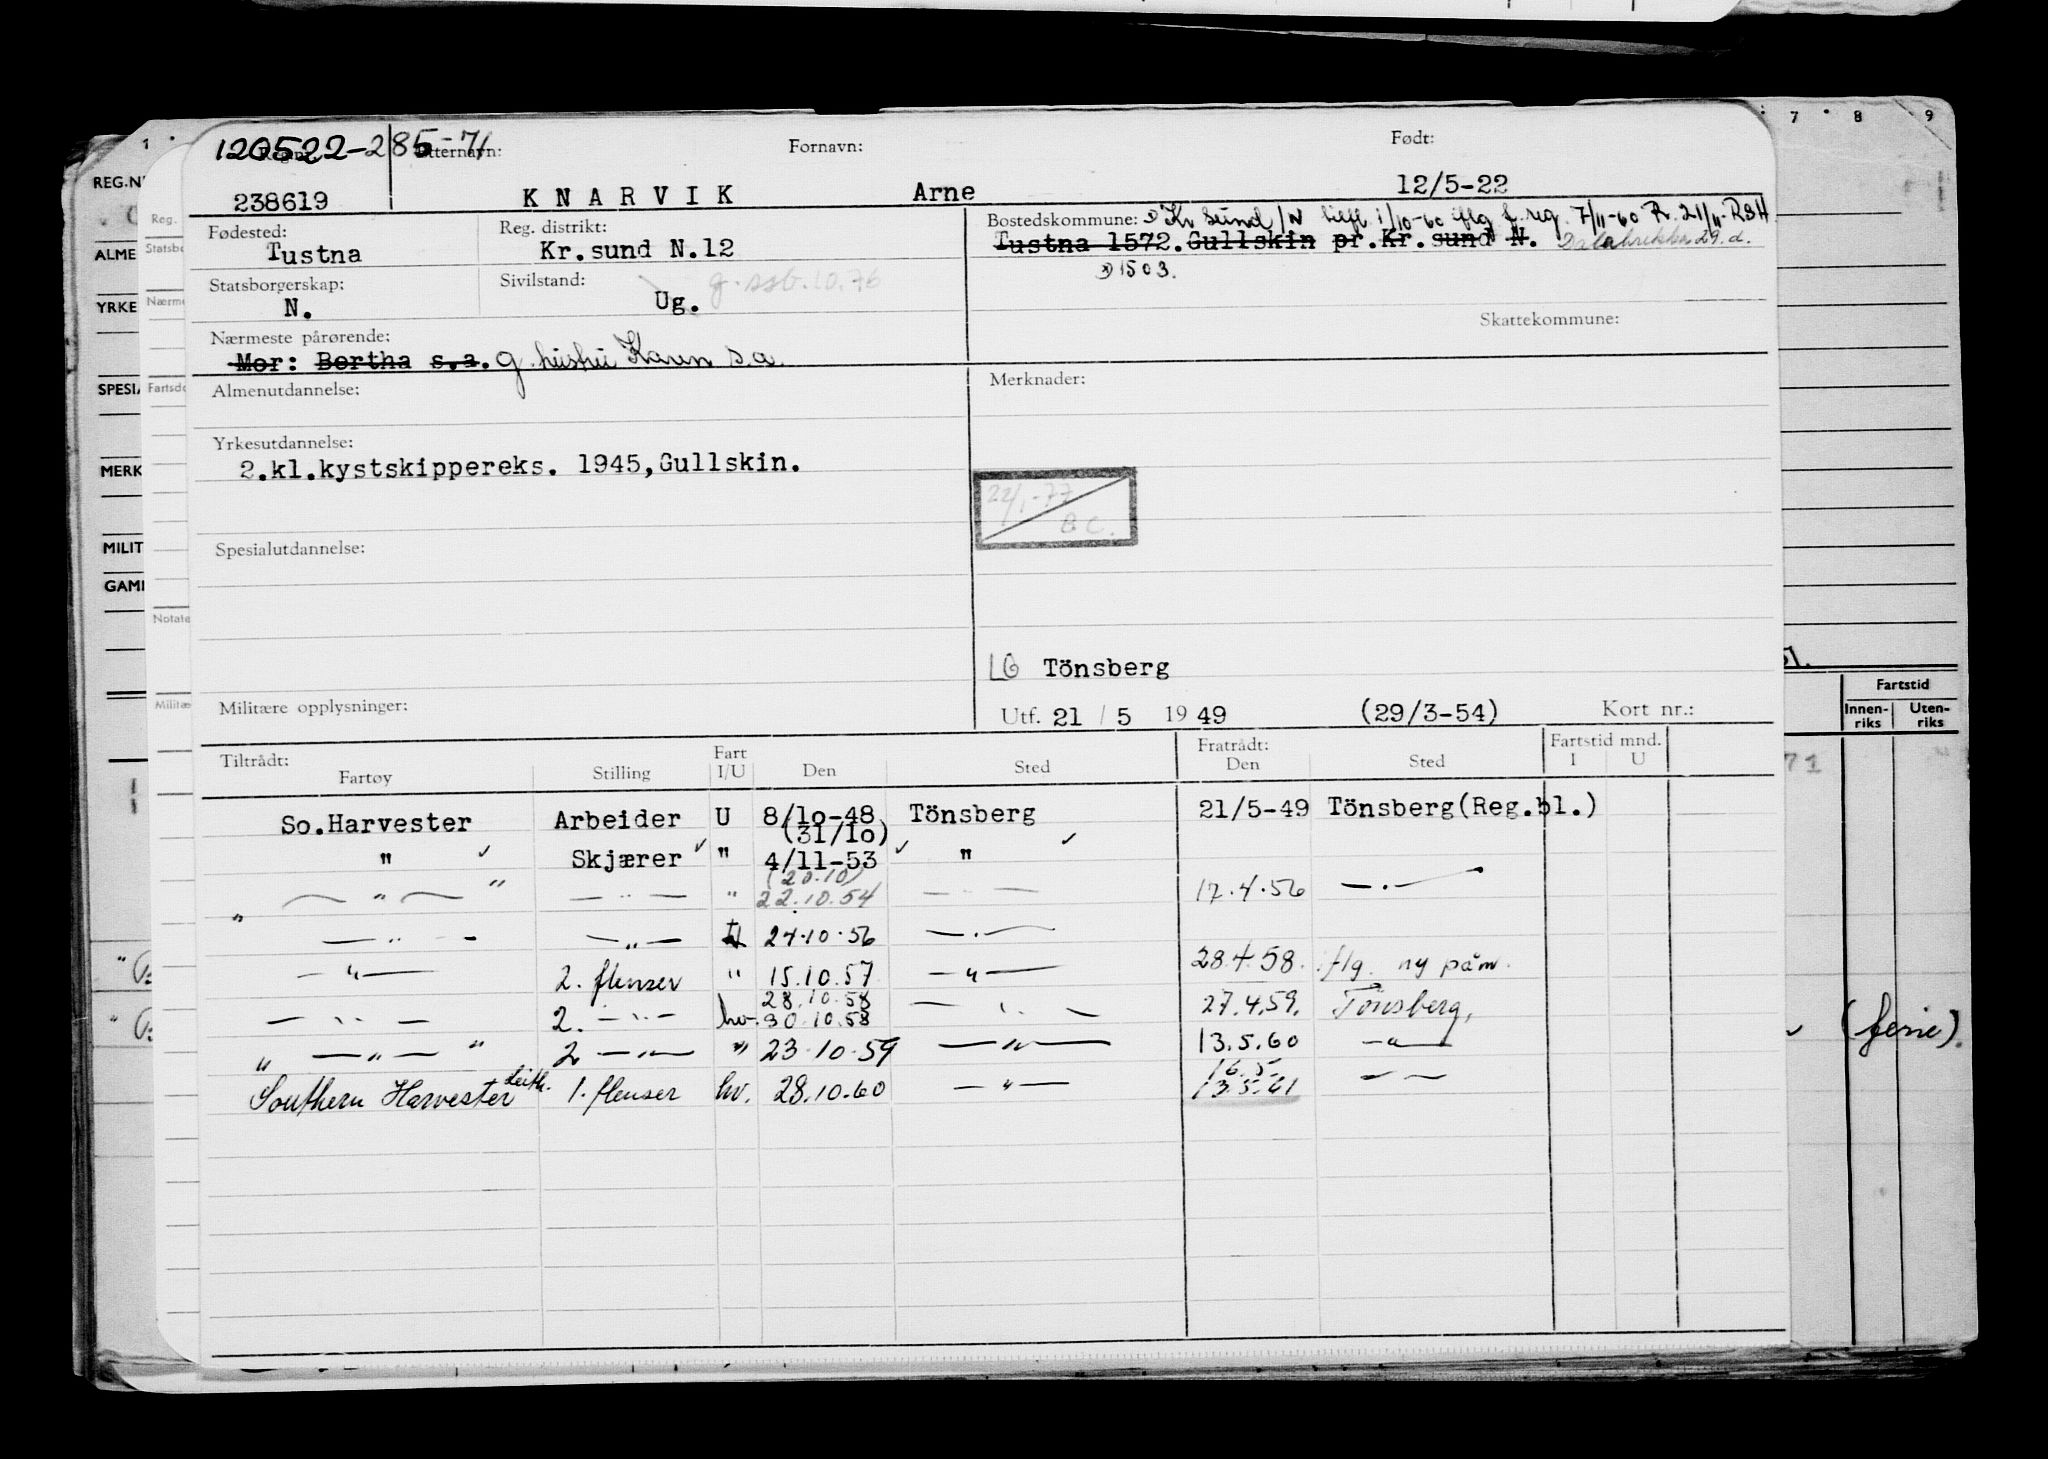 120522-285-71
Reg.nr. Etternavn: Fornavn: Født:
238619 KNARVIK Arne 12/5-22
Fødested: Reg. distrikt: Bostedskommune: Kr sund/N 1/10-60 iflg f. reg. 7/11-60 R. 21/11- RSH
Tustna Kr.sund N.12 Tustna 1572. Gullskin pr.Kr.sund N. 29. d.
1503.
Statsborgerskap: Sivilstand: g. 10.76
N. Ug.
Skattekommune:
Nærmeste pårørende:
Mor: Bertha s.a. g hustru Karen s.a.
Almenutdannelse: Merknader:
Yrkesutdannelse:
2.kl.kystskippereks. 1945,Gullskin.
22/1-77
B.C.
Spesialutdannelse:
LG Tönsberg
Militære opplysninger: Utf. 21 / 5 19 49 (29/3-54) Kort nr.:
Tiltrådt: Fart Fratrådt: Fartstid mnd.
Fartøy Stilling I/U Den Sted Den Sted I U
So.Harvester Arbeider U 8/1o-48 Tönsberg 21/5-49 Tönsberg(Reg.bl.)
(31/1o)
" Skjærer " 4/11-53 "
(20.10)
" — " — " — " — " 22.10.54 — " — 17.4.56 — " —
" — " — — " — 24.10.56 — " —
— " — 2. flenser " 15.10.57 — " — 28.4.58. flg. ny påm.
28.10.58
— " — 2. — " — hv. 30.10.58 — " — 27.4.59. Tönsberg,
" — " — " 2 — " — " 23.10.59 — " — 13.5.60 — " —
16.5.
Southern Harvester Leith. 1. flenser hv. 28.10.60 — " — 13.5.61 — " —
1
REG.N
ALME
YRKE
SPESIA
MERK
MILIT
GAML
Reg.
Statsbo
Nærme
Fartsdo
Notate
Militæ
7 8 9
Fartstid
Innen-riks Uten-riks
71
(ferie).